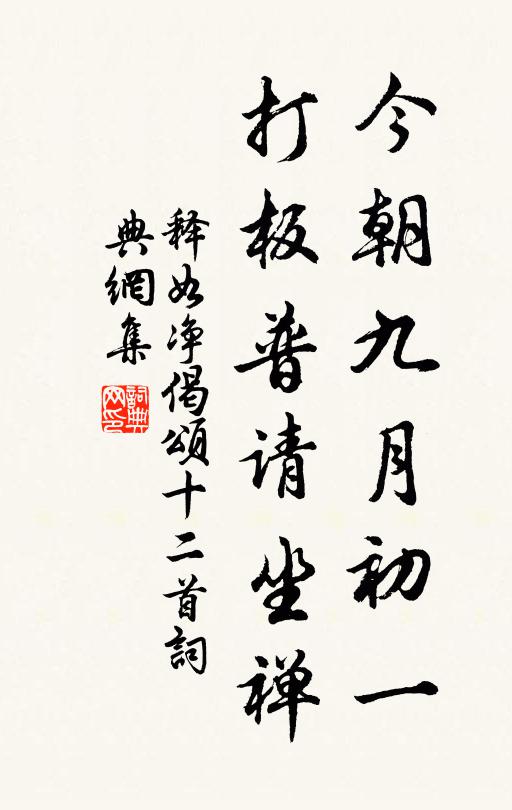 今朝九月初一
打板普请坐禅
释如净偈頌十二首詞
典網集
詞典网印